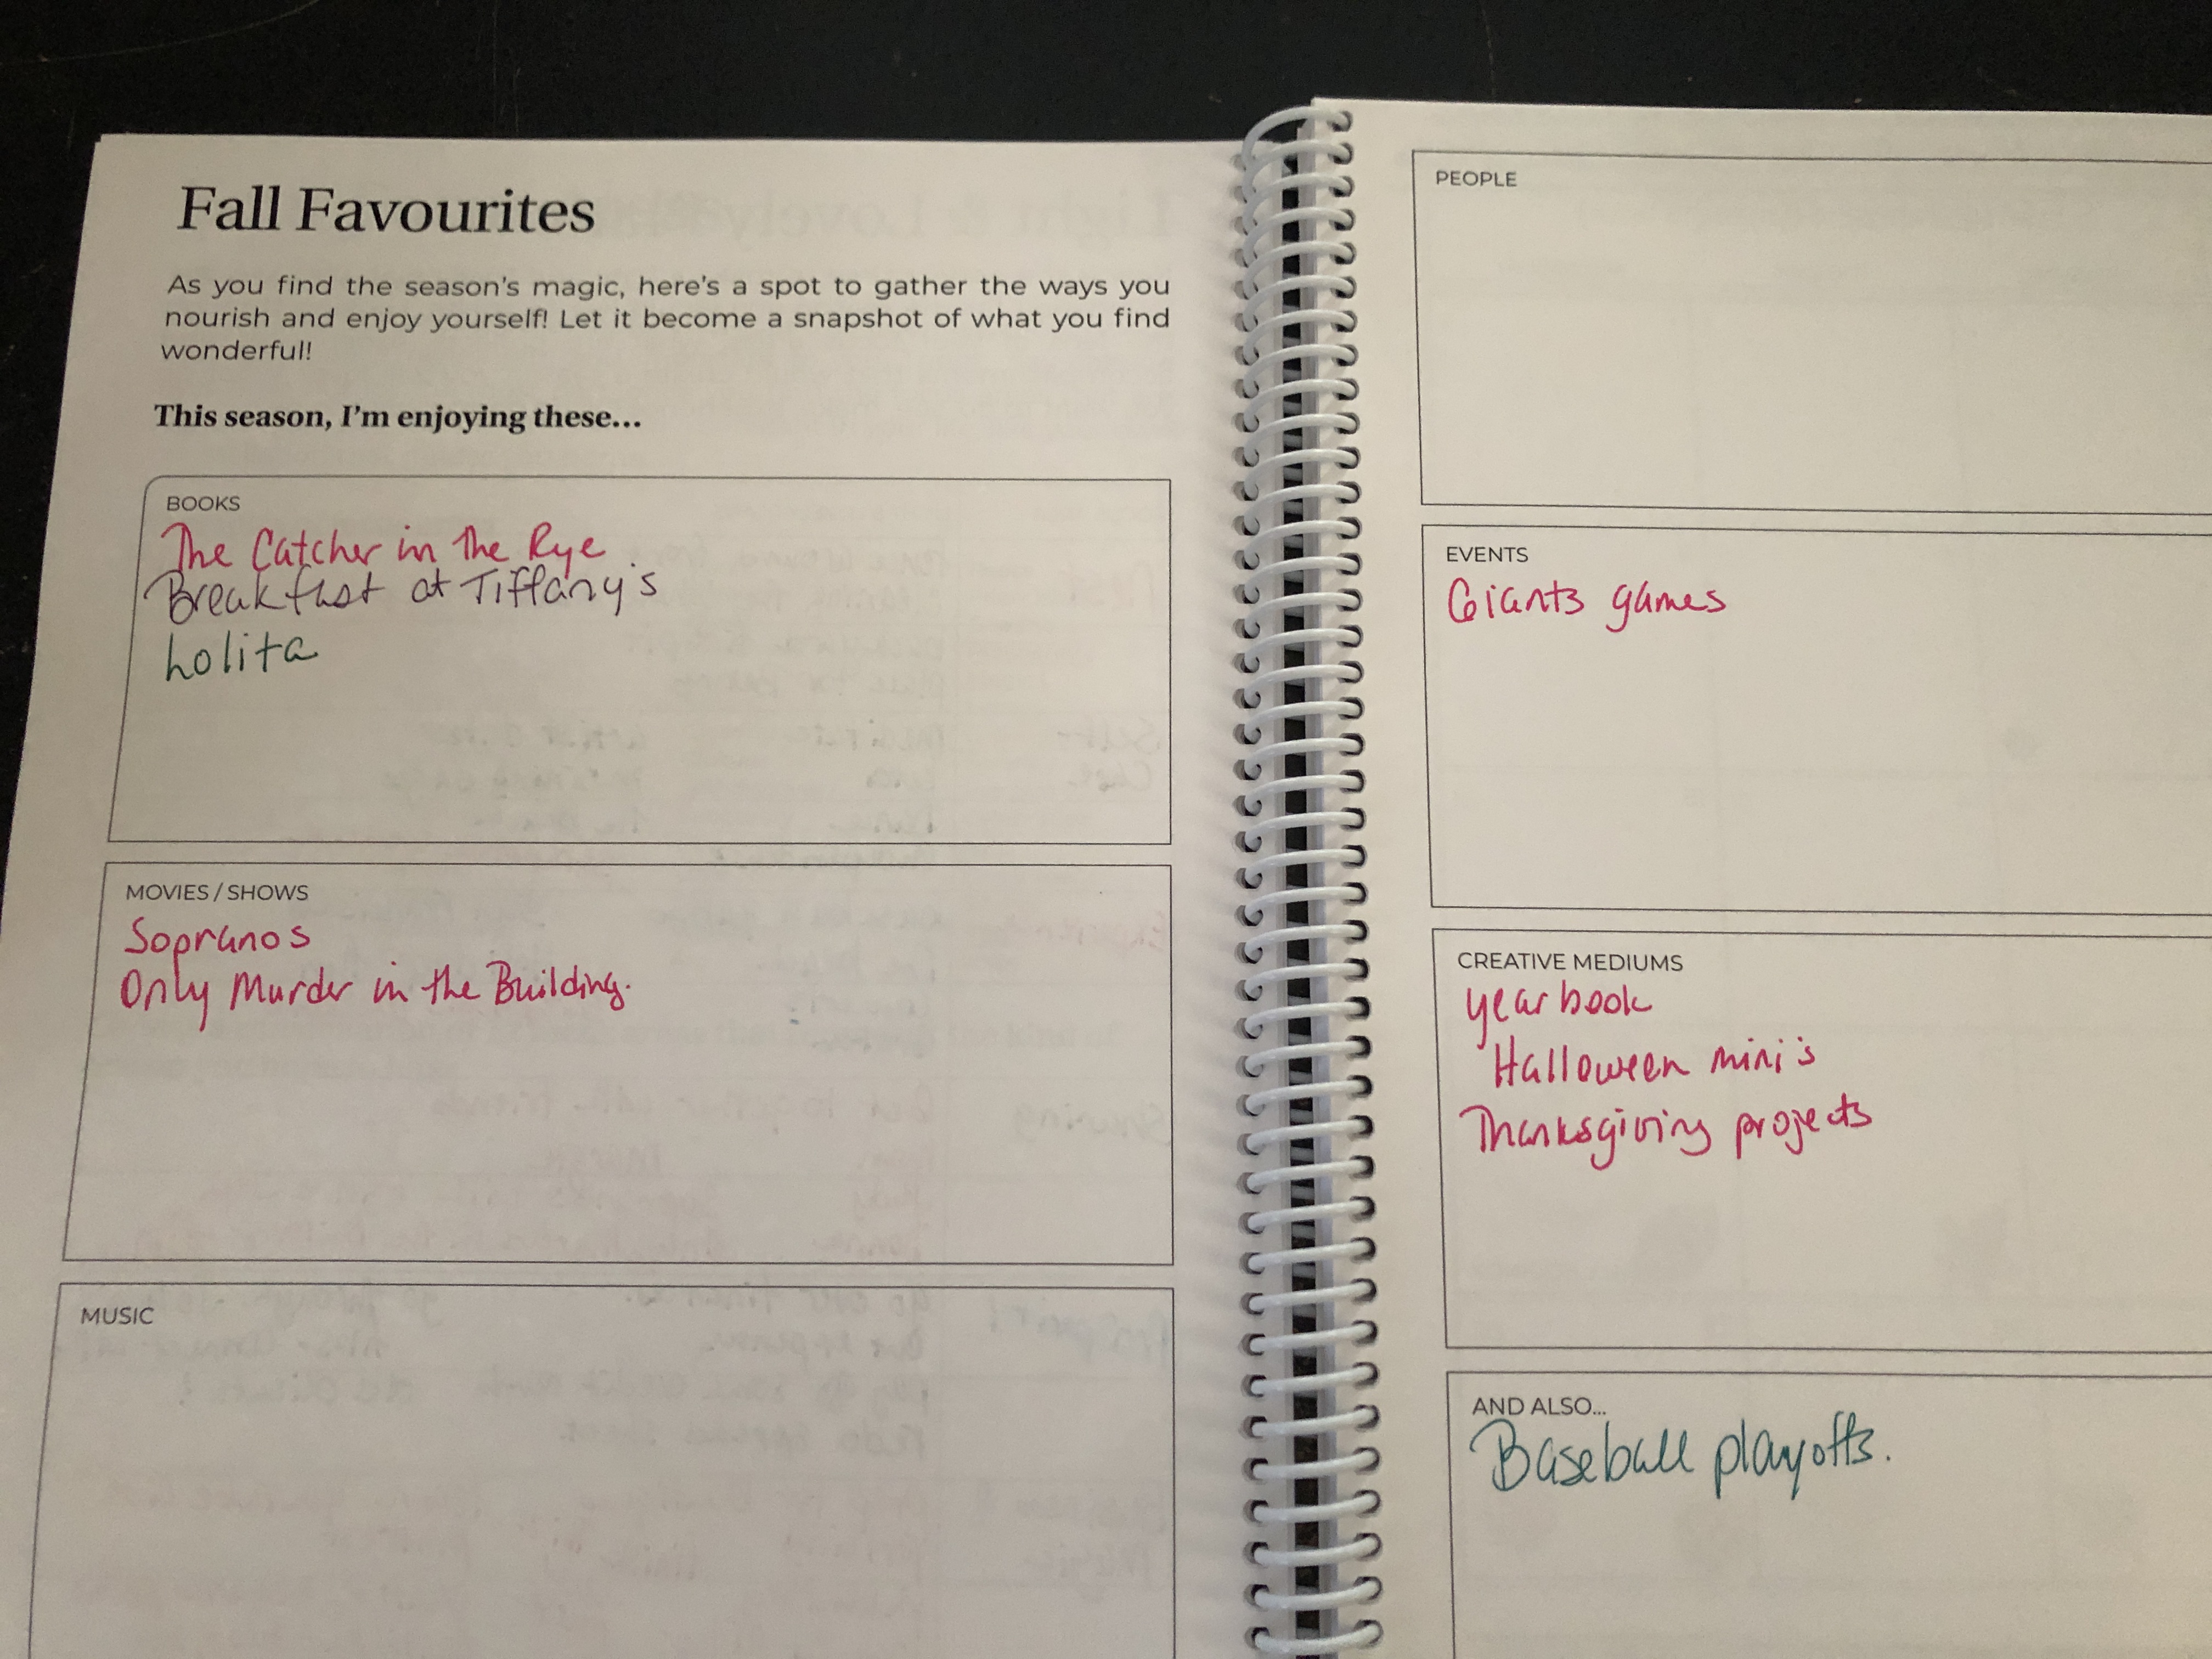 Fall Favourites
As you find the season's magic, here's a spot to gather the ways you
nourish and enjoy yourself! Let it become a snapshot of what you find
wonderful!
This season, I'm enjoying these...
BOOKS
The Catcher in the Rye
Breakfast at Tiffany's
Lolita
MOVIES / SHOWS
Sopranos
Only Murder in the Building.
MUSIC
PEOPLE
EVENTS
Giants games
CREATIVE MEDIUMS
yearbook
Halloween mini's
Thanksgiving projects
AND ALSO...
Baseball playoffs.